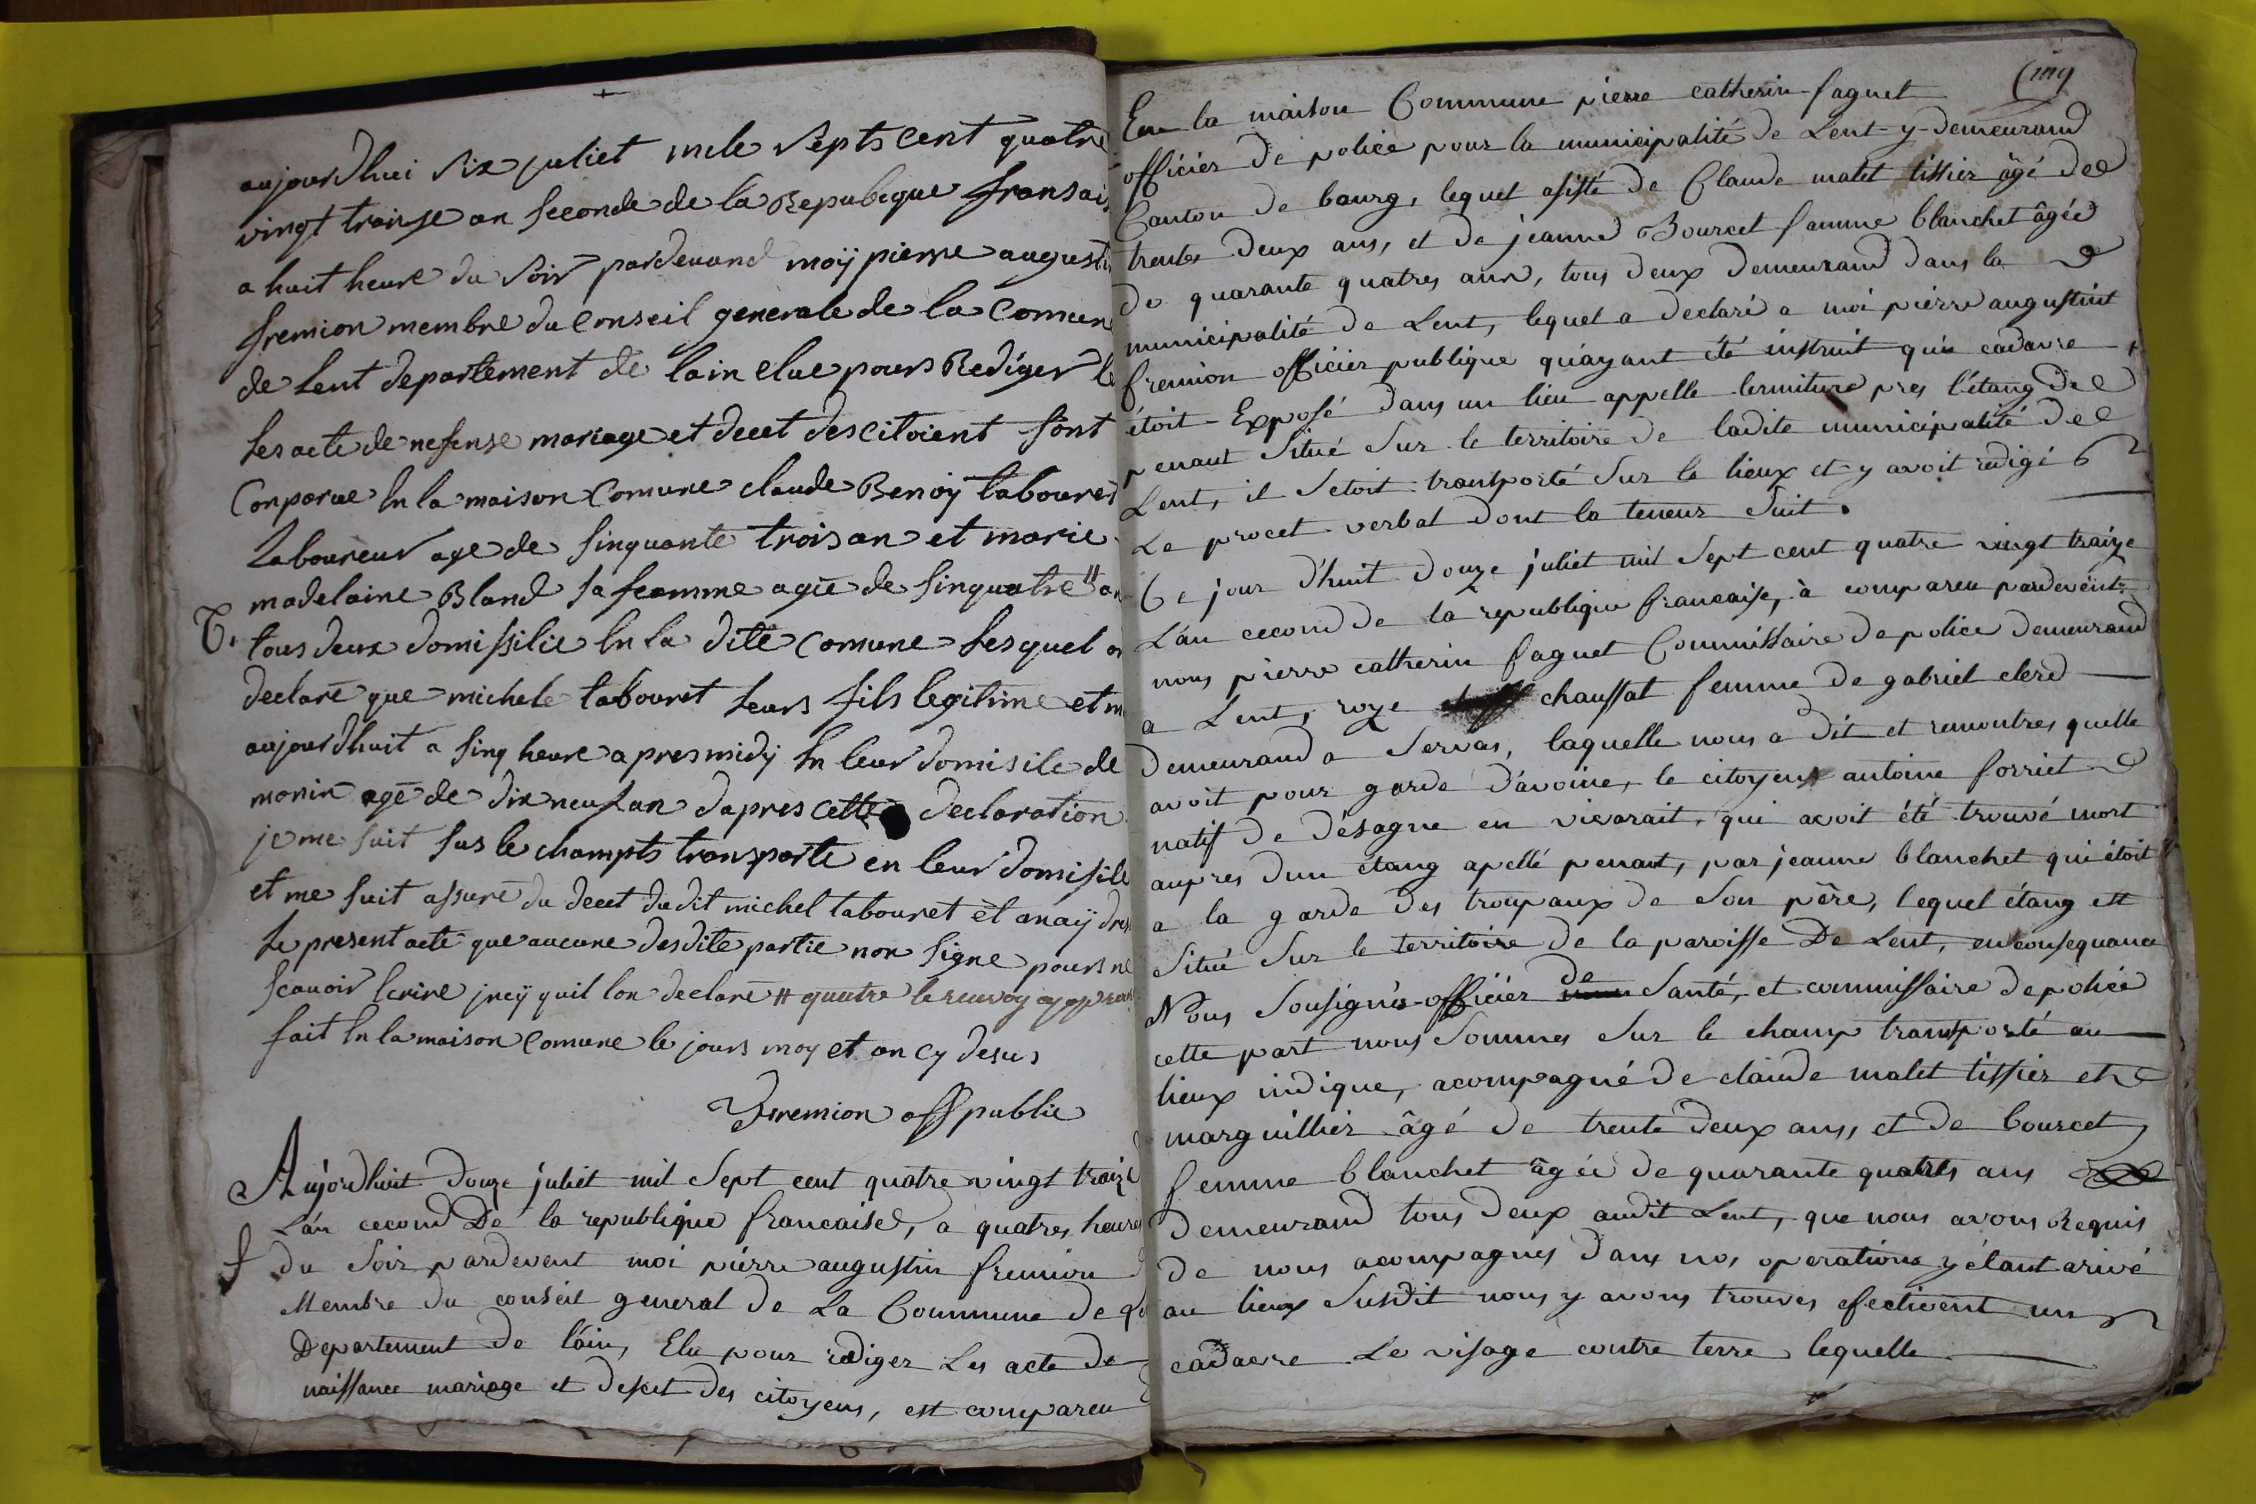 aujourdhui six juliet mile septs cent quatre
vingt traise an seconde de la Republeque fransais
a huit heure du soir pardevand moÿ pierre augusti
fremion membre du Conseil generale de la Comune
de lent departement de lain elue pours Rediger le
les acte de nesense mariage et decet des citoient sont
Conparue En la maison Comune claude Benoÿ tabouret
Laboureur age de sinquante trois an et marie
madelaine Bland sa feamme agée de sinquatre # an
tous deux domissilie En la dite Comune lesquel on
declare que michele tabouret leurs fils legitime et m
aujourdhuit a sinq heure apres midÿ En leur domisile de
monin age de dix neuf an dapres cette declaration
je me suit sus le champts transporte en leur domisile
et me suit assure du decet dudit michel tabouret et anaÿ dres
le present acte que aucune desdite partie non signe pours ne
scavoir Ecrire jnsÿ quil lon declare # quatre le renvoy approuv
fait En la maison Comune le jours moy et an cy desus
fremion off publie
Aujordhuit douze juliet mil sept cent quatre vingt traize
L'án cecond De la republique francaise, a quatres heures
du soir pardevent moi piérre augustin fremion
Membre du conséil general de La Commune de
Departement de l'áin, Elu pour rediger Les acte de
naissance mariage et deset des citoyens, est compareu
En la maison Commune pierre catherin faguet
officiér de police pour la municipalité de Lent y demeurand
Canton de bourg, lequel asisté de Claude malet tissiér âgé de
trente deux ans, et de jeanne Bourcet famme blanchet âgée
de quarante quatres ans, tous deux demeurand dans la
municipalité de Lent, lequel a declaré a moi piérre augustint
fremion officiér publique qu'ayant été instruit qu'un cadavre
étoit Exposé dans un lieu appelle lermiture pres l'étang de
penaut situé sur le territoire de ladite municipalité de
Lent, il s'etoit transporté sur le lieux et y avoit redigé
Le procet verbal dont la teneur suit.
Ce jour d'huit douze juliet mil sept cent quatre vingt traize
L'án cecond de la republique francaise, à compareu pardevént
nous pierre catherin faguet Commissaire de police demeurand
a Lent, roze chaussat femme de gabriel clerd
demeurand a Servas, laquelle nous a dit et remontres quelle
avoit pour garde d'avoine, le citoyens antoine forriet
natif de désagne en vivarait, qui avoit été trouvé mort
aupres dun étang apellé penaut, par jeanne blanchet qui étoit
a la garde des troupaux de son père, lequel étang est
situé sur le territoire de la paroisse De Lent, en consequance
Nous sousignés officiér de santé, et commissaire de police
cette part nous sommes sur le champ transporté au
lieux indique, acompagné de claude malet tissiér et
marguilliér âgé de trente deux ans, et de bourcet
femme blanchet âgée de quarante quatres ans
demeurand tous deux audit Lent, que nous avons Requis
de nous acompagnes dans nos operations y étant arivé
au lieux susdit nous y avons trouves efectivent un
cadavre Le visage contre terre lequelle